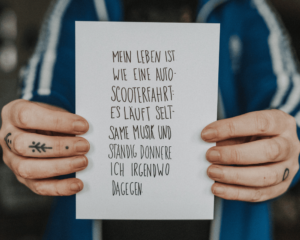 MEIN LEBEN IST
WIE EINE AUTO-
SCOOTERFAHRT:
ES LÄUFT SELT-
SAME MUSIK UND
STÄNDIG DONNERE
ICH IRGENDWO
DAGEGEN